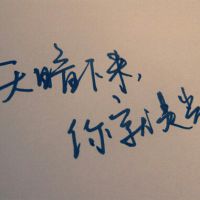 天暗下来,
你就是光